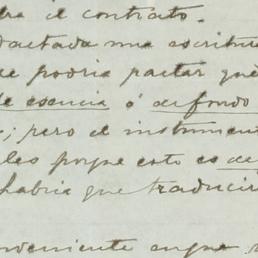 el contrato.
dactada una escritura
podria pactar que
de esencia ó de fondo
; pero el instrumen
les porque esto es de
habria que traducir
veniente en que